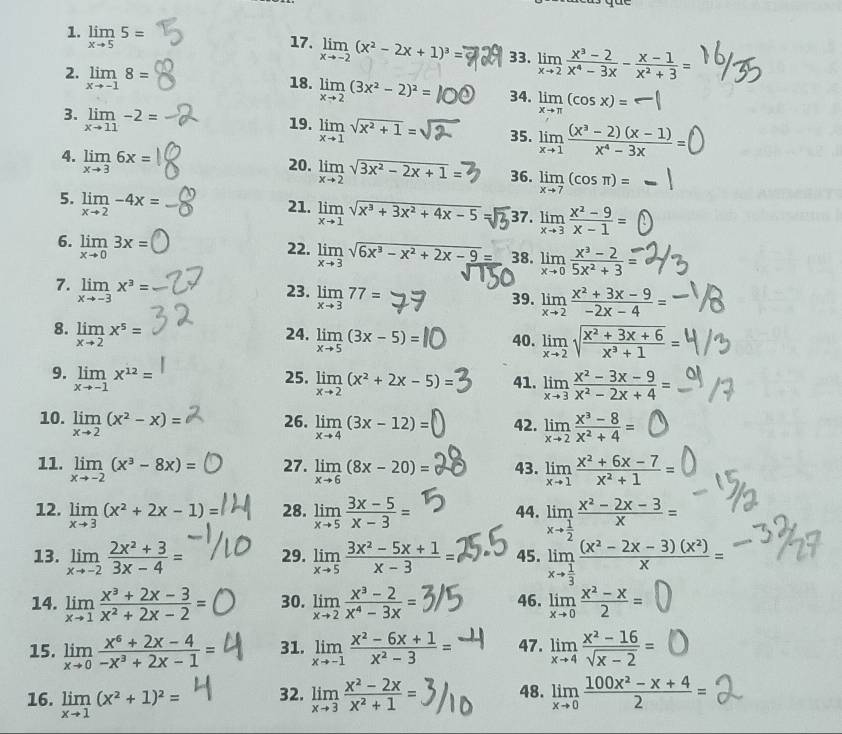 1. lim x→5 5 = 5
2. lim x→-1 8 = 8
3. lim x→11 -2 = -2
4. lim x→3 6x = 18
5. lim x→2 -4x = -8
6. lim x→0 3x = 0
7. lim x→-3 x³ = -27
8. lim x→2 x⁵ = 32
9. lim x→-1 x¹² = 1
10. lim x→2 (x² - x) = 2
11. lim x→-2 (x³ - 8x) = 0
12. lim x→3 (x² + 2x - 1) = 14
13. lim x→-2 (2x² + 3)/(3x - 4) = -1/10
14. lim x→1 (x³ + 2x - 3)/(x² + 2x - 2) = 0
15. lim x→0 (x⁶ + 2x - 4)/(-x³ + 2x - 1) = 4
16. lim x→1 (x² + 1)² = 4
17. lim x→-2 (x² - 2x + 1)³ = 729
18. lim x→2 (3x² - 2)² = 100
19. lim x→1 √(x² + 1) = √2
20. lim x→2 √(3x² - 2x + 1) = 3
21. lim x→1 √(x³ + 3x² + 4x - 5) = √3
22. lim x→3 √(6x³ - x² + 2x - 9) = √150
23. lim x→3 77 = 77
24. lim x→5 (3x - 5) = 10
25. lim x→2 (x² + 2x - 5) = 3
26. lim x→4 (3x - 12) = 0
27. lim x→6 (8x - 20) = 28
28. lim x→5 (3x - 5)/(x - 3) = 5
29. lim x→5 (3x² - 5x + 1)/(x - 3) = 25.5
30. lim x→2 (x³ - 2)/(x⁴ - 3x) = 3/5
31. lim x→-1 (x² - 6x + 1)/(x² - 3) = -4
32. lim x→3 (x² - 2x)/(x² + 1) = 3/10
33. lim x→2 (x³ - 2)/(x⁴ - 3x) - (x - 1)/(x² + 3) = 16/35
34. lim x→π (cos x) = -1
35. lim x→1 (x³ - 2)(x - 1)/(x⁴ - 3x) = 0
36. lim x→7 (cos π) = -1
37. lim x→3 (x² - 9)/(x - 1) = 0
38. lim x→0 (x³ - 2)/(5x² + 3) = -2/3
39. lim x→2 (x² + 3x - 9)/(-2x - 4) = -1/8
40. lim x→2 √((x² + 3x + 6)/(x³ + 1)) = 4/3
41. lim x→3 (x² - 3x - 9)/(x² - 2x + 4) = -9/7
42. lim x→2 (x³ - 8)/(x² + 4) = 0
43. lim x→1 (x² + 6x - 7)/(x² + 1) = 0
44. lim x→1/2 (x² - 2x - 3)/x = -15/2
45. lim x→1/3 (x² - 2x - 3)(x²)/x = -32/27
46. lim x→0 (x² - x)/2 = 0
47. lim x→4 (x² - 16)/√(x - 2) = 0
48. lim x→0 (100x² - x + 4)/2 = 2